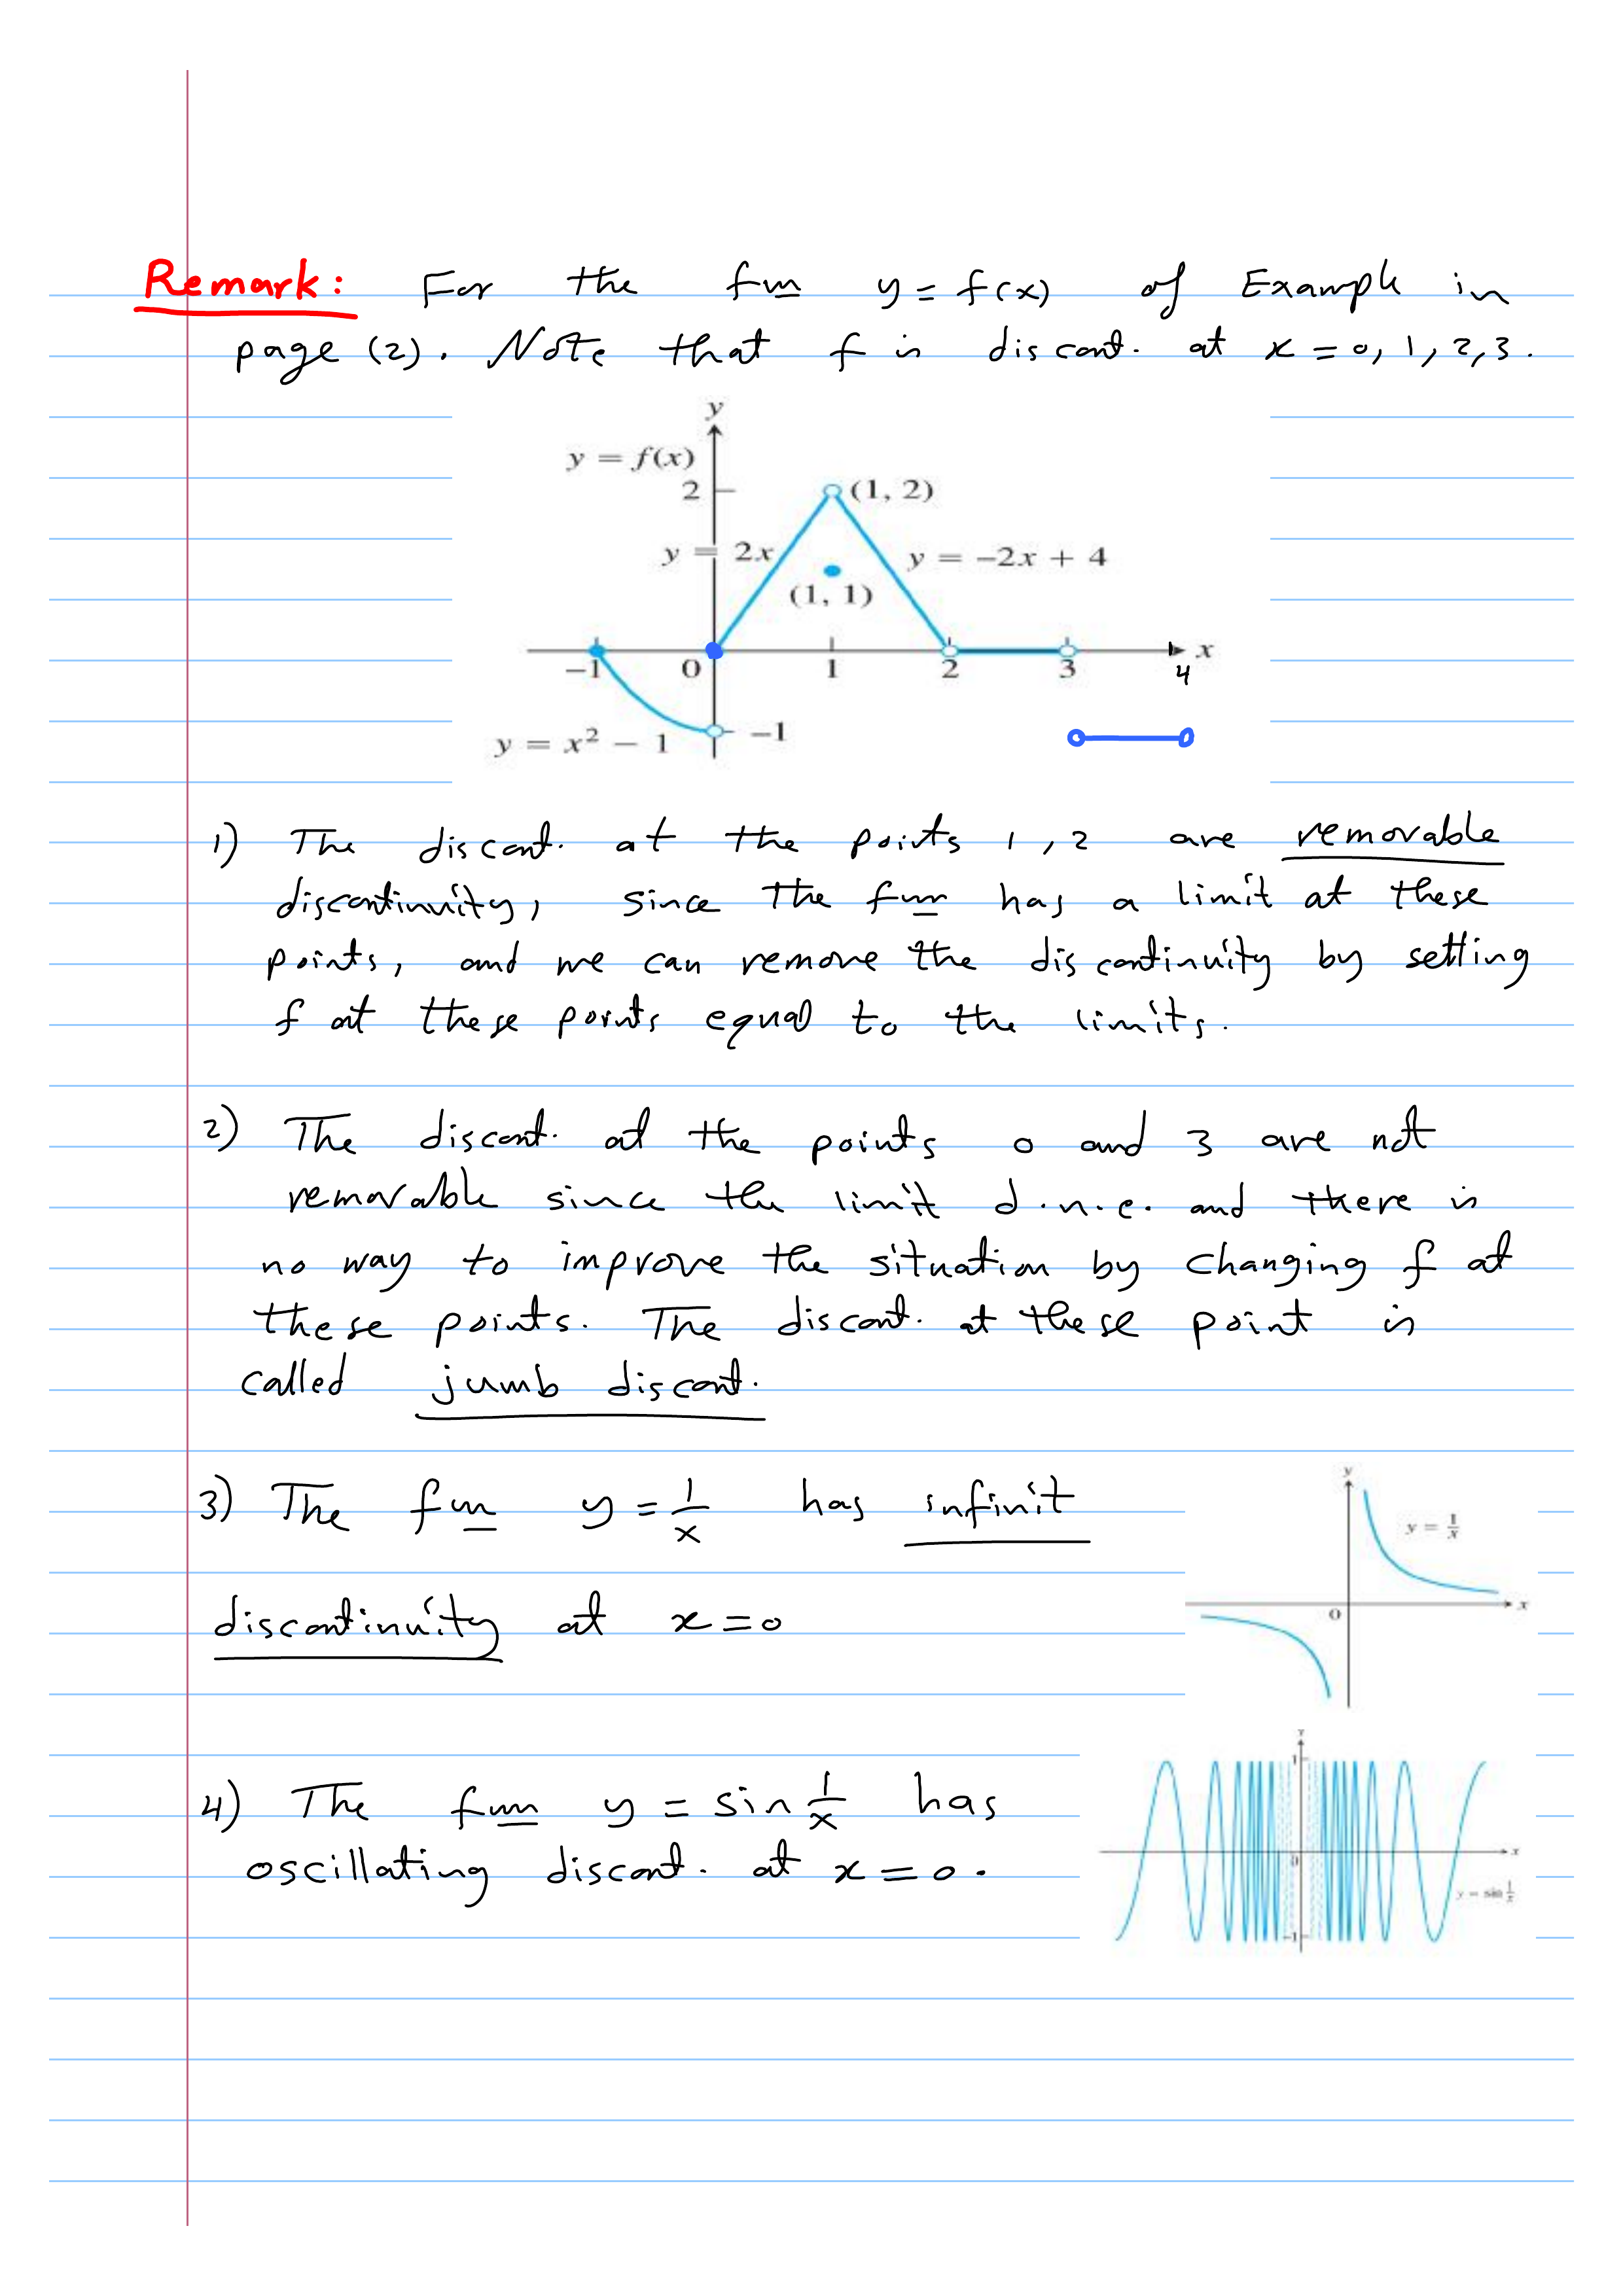 Remark: For the fun y = f(x) of Example in
page (2). Note that f is discont. at x = 0, 1, 2, 3.
y
y = f(x)
2
(1, 2)
y = 2x
y = -2x + 4
(1, 1)
-1 0 1 2 3 x
4
-1
y = x² - 1
1) The discont. at the points 1, 2 are removable
discontinuity, since the fun has a limit at these
points, and we can remove the discontinuity by setting
f at these points equal to the limits.
2) The discont. at the points 0 and 3 are not
removable since the limit d.n.e. and there is
no way to improve the situation by changing f at
these points. The discont. at these point is
called jumb discont.
3) The fun y = 1/x has infinit
discontinuity at x = 0
y
y = 1/x
0
x
4) The fun y = sin 1/x has
oscillating discont. at x = 0.
y
1
0
x
y = sin 1/x
-1